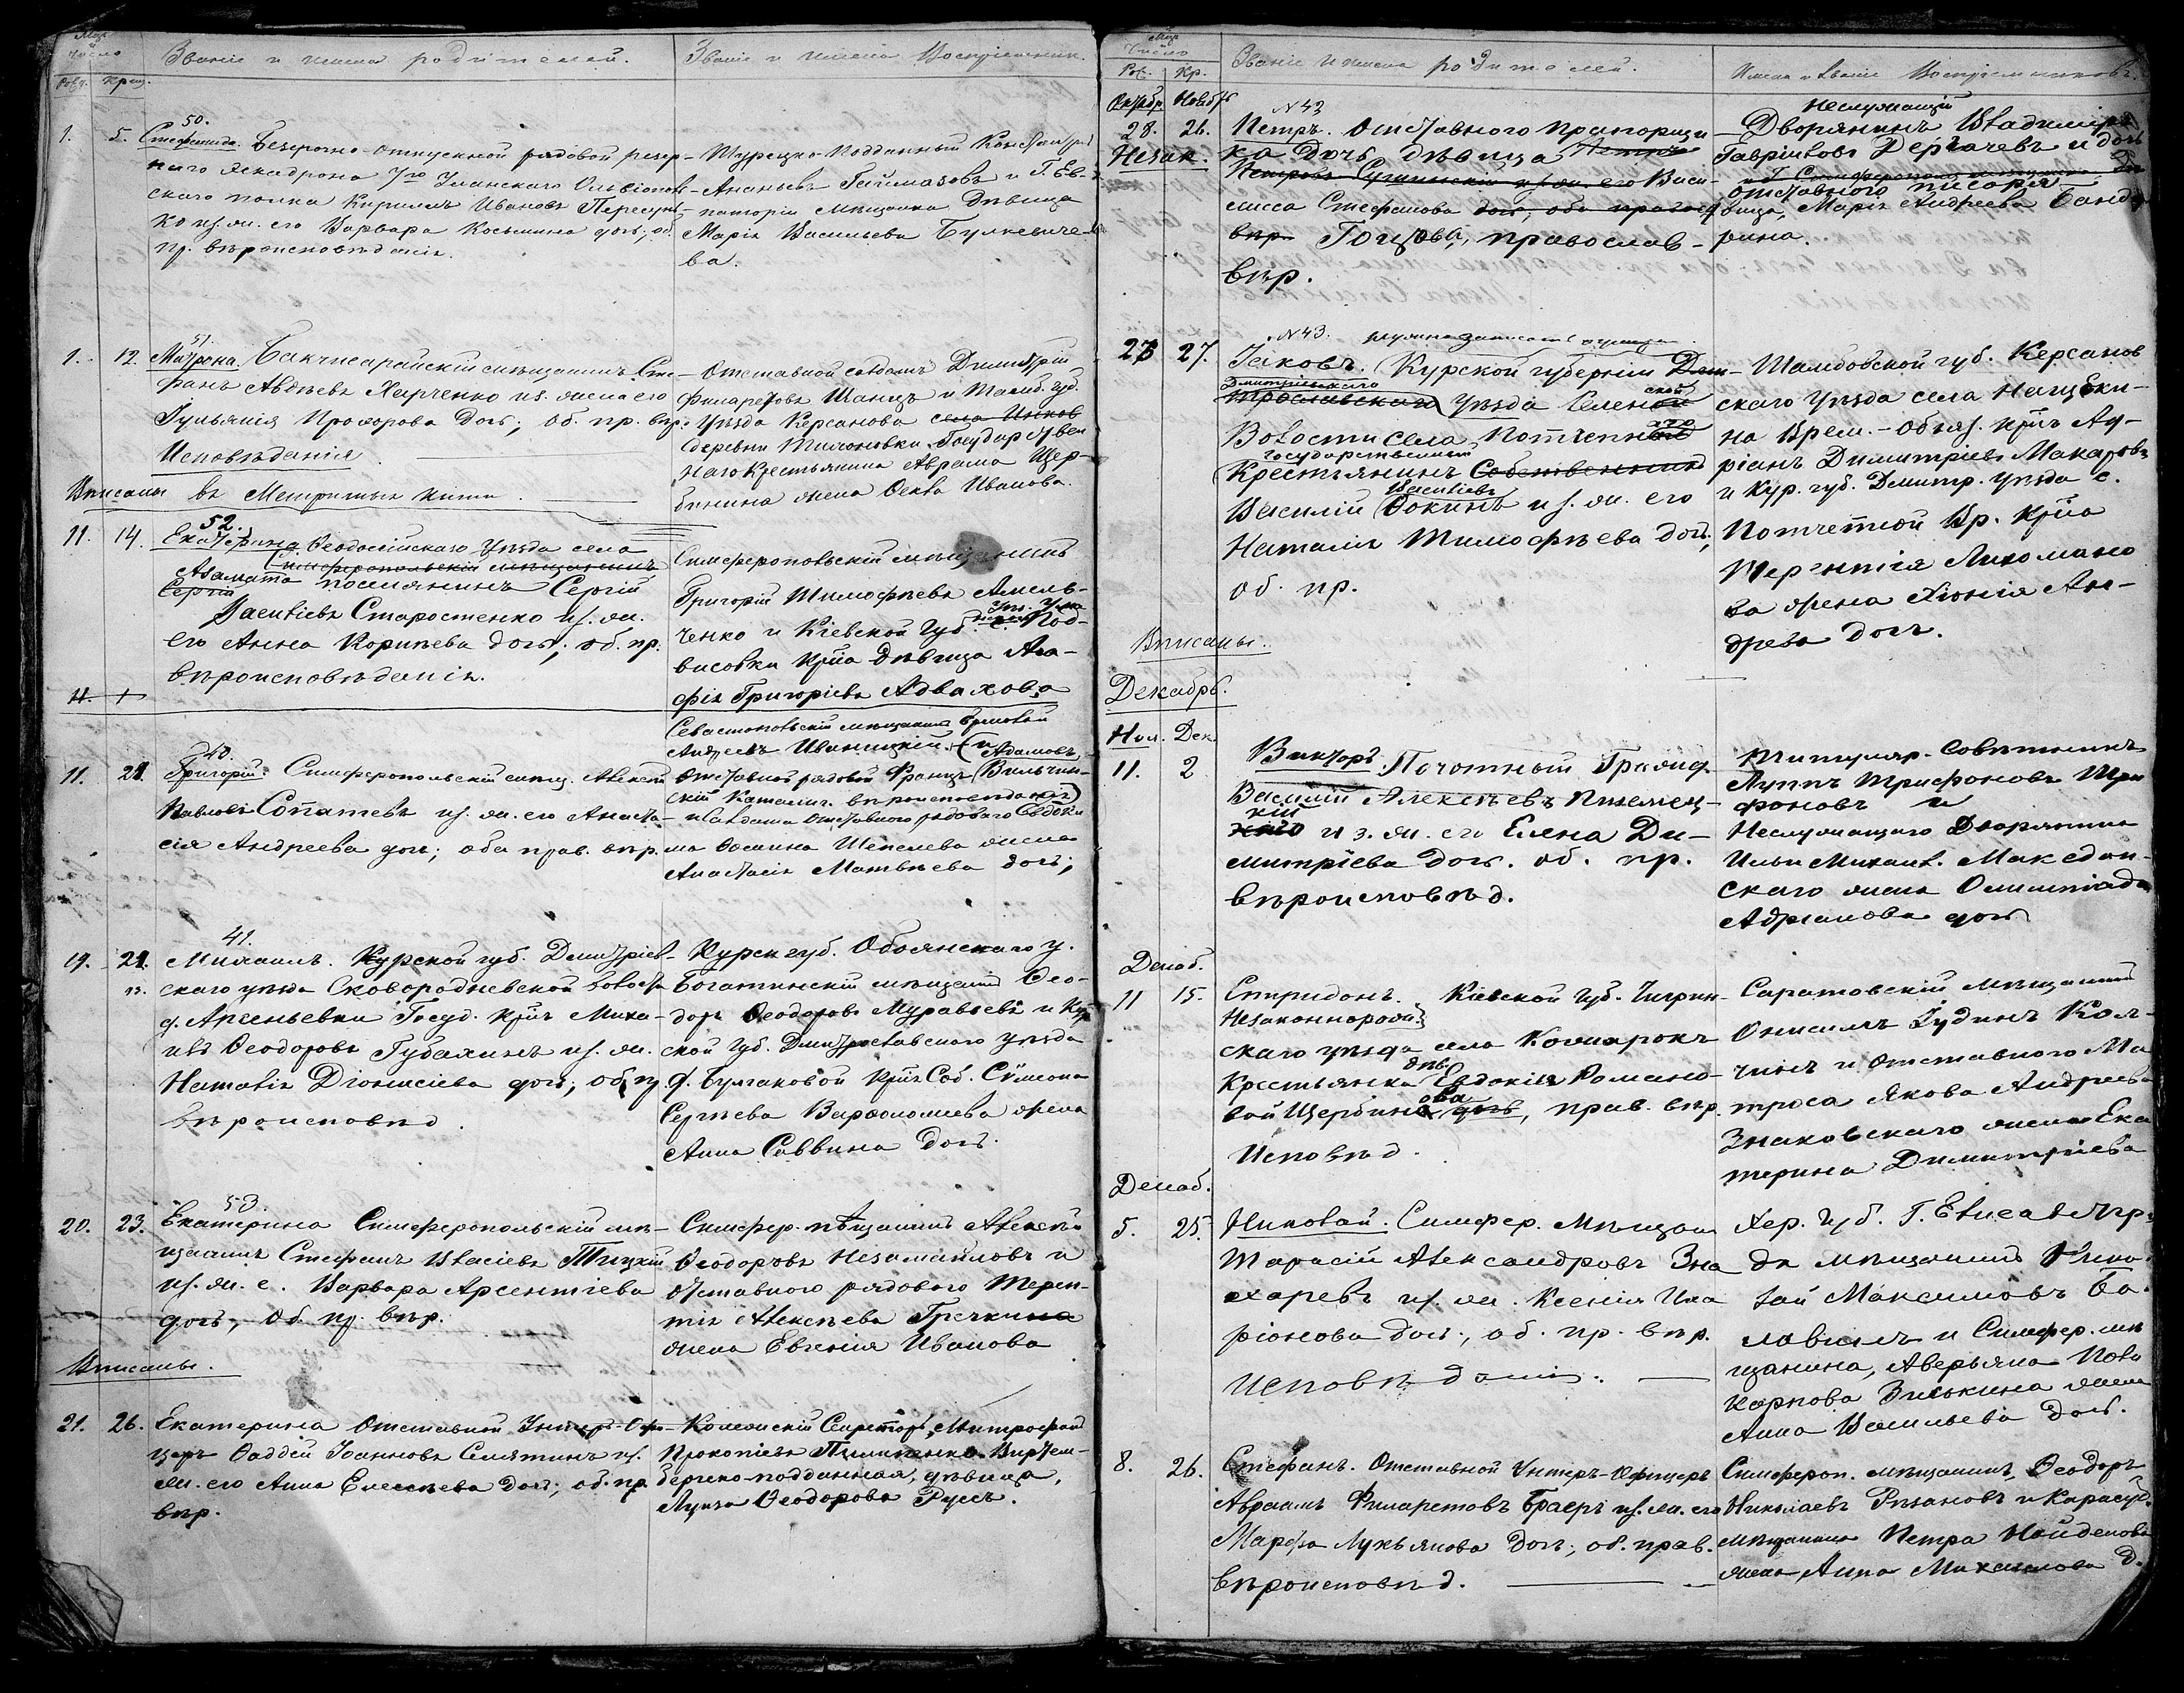 Мѣс. и Число
Рожд. Крещ.
Званіе и имена родителей.
Званіе и имена Воспріемник.
1. 5.
50.
Стефанида. Безсрочно-отпускной рядовой резер-
наго эскадрона 7го Уланскаго Ольвіополь-
скаго полка Кириллъ Ивановъ Пересунь-
ко из. ж. его Варвара Косьмина дочь; об.
пр. вѣроисповѣданія.
Турецко-Подданный
Ананьевъ Гаймазовъ и Г. Ев-
паторіи Мѣщанка Дѣвица
Марія Васильева Булкевиче-
ва.
1. 12.
51.
Матрона. Бакчисарайскій мѣщанинъ Сте-
фанъ Авдѣевъ Харченко из. жена его
Іульянія Прохорова Дочь; об. пр. вѣр.
Исповѣданія.
Отставной солдатъ Димитрій
Филаретовъ Шанцъ и Тамб. губ.
Уѣзда Керсанова села Инков
деревни Тихоновки Государствен
наго Крестьянина Аврама Щер-
бинина жена Ѳекла Иванова.
Вписаны въ Метрическія книги.
11. 14.
52.
Екатерина. Ѳеодосійскаго Уѣзда села
Симферопольскій мѣщанинъ
Аблмата поселянинъ Сергій
Сергій
Васильевъ Старостенко из. ж.
его Анна Корнѣева дочь; об. пр.
вѣроисповѣданія.
Симферопольскій мѣщанинъ
Григорій Тимофѣевъ Амель-
ченко и Кіевской Губ. с. Под-
высовки Кр. Дѣвица Ага-
фія Григоріева Адвахова
11. 1
11. 21.
40.
Григорій. Симферопольскій мѣщ. Алексѣй
Павловъ Сопатевъ из. ж. его Анаста-
сія Андреева дочь; оба прав. вѣр.
Севастопольскій мѣщанинъ
Андреевъ Иваницкій (и Адамовъ
Отставной рядовой Францъ Вильчин-
скій Католич. вѣроисповѣданія)
и солдата Отставного рядоваго Евдоки
ма Ѳомина Шепелева жена
Анастасія Матвѣева дочь;
19. 21.
41.
Михаилъ. Курской губ. Дмитріев-
скаго уѣзда Сковородневской волости
д. Арсеньевки Госуд. кр. Миха-
илъ Ѳеодоровъ Губахинъ из. ж.
Наталія Діонисіева дочь; об. пр
вѣроисповѣд.
Курск губ. Обоянскаго у.
Богатинскій мѣщанинъ Ѳео-
доръ Ѳеодоровъ Муравьевъ и Кур
ской Губ. Дмитровскаго уѣзда
д. Булгаковой Кр. Соб. Сѵмеона
Сергѣева Варѳоломеева жена
Анна Саввина Дочь.
20. 23.
53.
Екатерина Симферопольскій мѣ-
щанинъ Стефанъ Власіевъ Тицкій
из. ж. е. Варвара Арсентіева
дочь; об. пр. вѣр.
Симфер. мѣщанинъ Алексѣй
Ѳеодоровъ Незамайловъ и
Отставного рядового Терен-
тія Алексѣева Гречкина
жена Евгенія Иванова
Вписаны.
21. 26.
Екатерина Отставной Унтеръ-Офи-
церъ Ѳаддѣй Іоанновъ Семятинъ из.
ж. его Анна Елисѣева дочь; об. пр
вѣр.
Колежскій Секретарь Митрофанъ
Прокопіевъ Пилипенко Виртем-
бергско-подданная, дѣвица,
Луиза Ѳеодорова Руссъ.
Мѣс. Число
Рож. Кр.
Званіе и имена родителей.
Имена и Званіе Воспріемниковъ.
Октябр. Ноябрь
28. 26.
Незак.
N 42
Петръ. Отставного прапорщи
ка Дочь дѣвица Петръ
Петровъ Сушинскій из. ж. его Васи-
лисса Стефанова дочь, оба правосл
вѣр. Гоцова, православ-
вѣр.
Неслужащій
Дворянинъ Владиміръ
Гавріиловъ Дергачевъ и дочь
и Г. Симферополя мѣщанка Дѣ
отставного писаря
вица, Марія Андреева Банду
рина.
27. 27.
N 43.
Іаковъ. Курской губерніи Дми
Дмитріевскаго
трославскаго уѣзда Селен
Волости села Потчепн
государственный
Крестьянинъ Собственникъ
Васильевъ
Василій Ѳокинъ из. ж. его
Наталія Тимофѣева дочь,
об. пр.
Тамбовской губ. Керсанов
скаго уѣзда села Нащеки-
на Врем.-обяз. кр. Ад-
ріанъ Димитріевъ Макаровъ
и Кур. губ. Дмитр. уѣзда с.
Потчепной Вр. кр.
Терентія Лихомано
ва жена Хіонія Ан-
дреева дочь.
Вписаны.
Декабрь.
Ноя. Дек.
11. 2
Викторъ. Почотный Гражд.
Василій Алексѣевъ Пиженец-
кій
каго из. ж. его Елена Ди-
митріева дочь. об. пр.
вѣроисповѣд.
Титуляр. Совѣтникъ
Луппъ Трифоновъ Три
фоновъ и
Неслужащаго Дворянина
Ильи Михаил. Македон-
скаго жена Олимпіада
Адріанова дочь
Декаб.
11 15.
Спиридонъ. Кіевской губ. Чигрин-
Незаконнорож.
скаго уѣзда села Косчарокъ
дѣв.
Крестьянка Евдокія Романо-
ова
вой Щербина дочь, прав. вѣр.
Исповѣд.
Саратовскій мѣщанинъ
Онисимъ Іудинъ Кал-
чинъ и отставного Ма
троса Якова Андреева
Знаковскаго жена Ека
терина Димитріева
Декаб.
5. 25.
Николай. Симфер. Мѣщан
Тарасій Александровъ Зна
харевъ из. ж. Ксенія Ила
ріонова дочь, об. пр. вѣр.
исповѣданія.
Хер. губ. Г. Елисаветгра
да мѣщанинъ Нико
лай Максимовъ Ба-
лабанъ и Симфер. мѣ
щанина, Аверьяна Поли
карпова Зинькина жена
Анна Васильева дочь.
8. 26.
Стефанъ. Отставной Унтеръ-Офицеръ
Авраамъ Филаретовъ Браеръ из. ж. его
Марѳа Лукьянова дочь; об. прав.
вѣроисповѣд.
Симфероп. мѣщанинъ Ѳеодоръ
Николаевъ Рязановъ и Карасуб.
мѣщанина Петра Найденова
жена Анна Михаилова д.